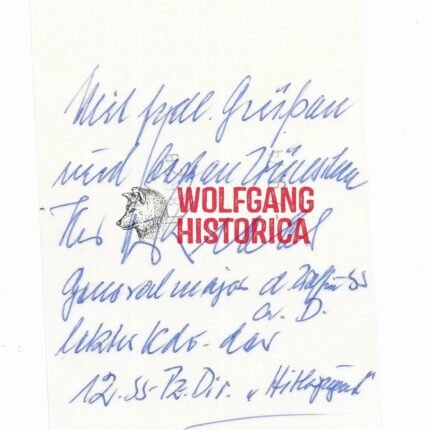 Mit frdl. Grüßen
und besten Wünschen
Ihr
WOLFGANG
HISTORICA
Generalmajor d. Waffen SS
a. D.
letzter Kdr. der
12. SS-Pz. Div. „Hitlerjugend"